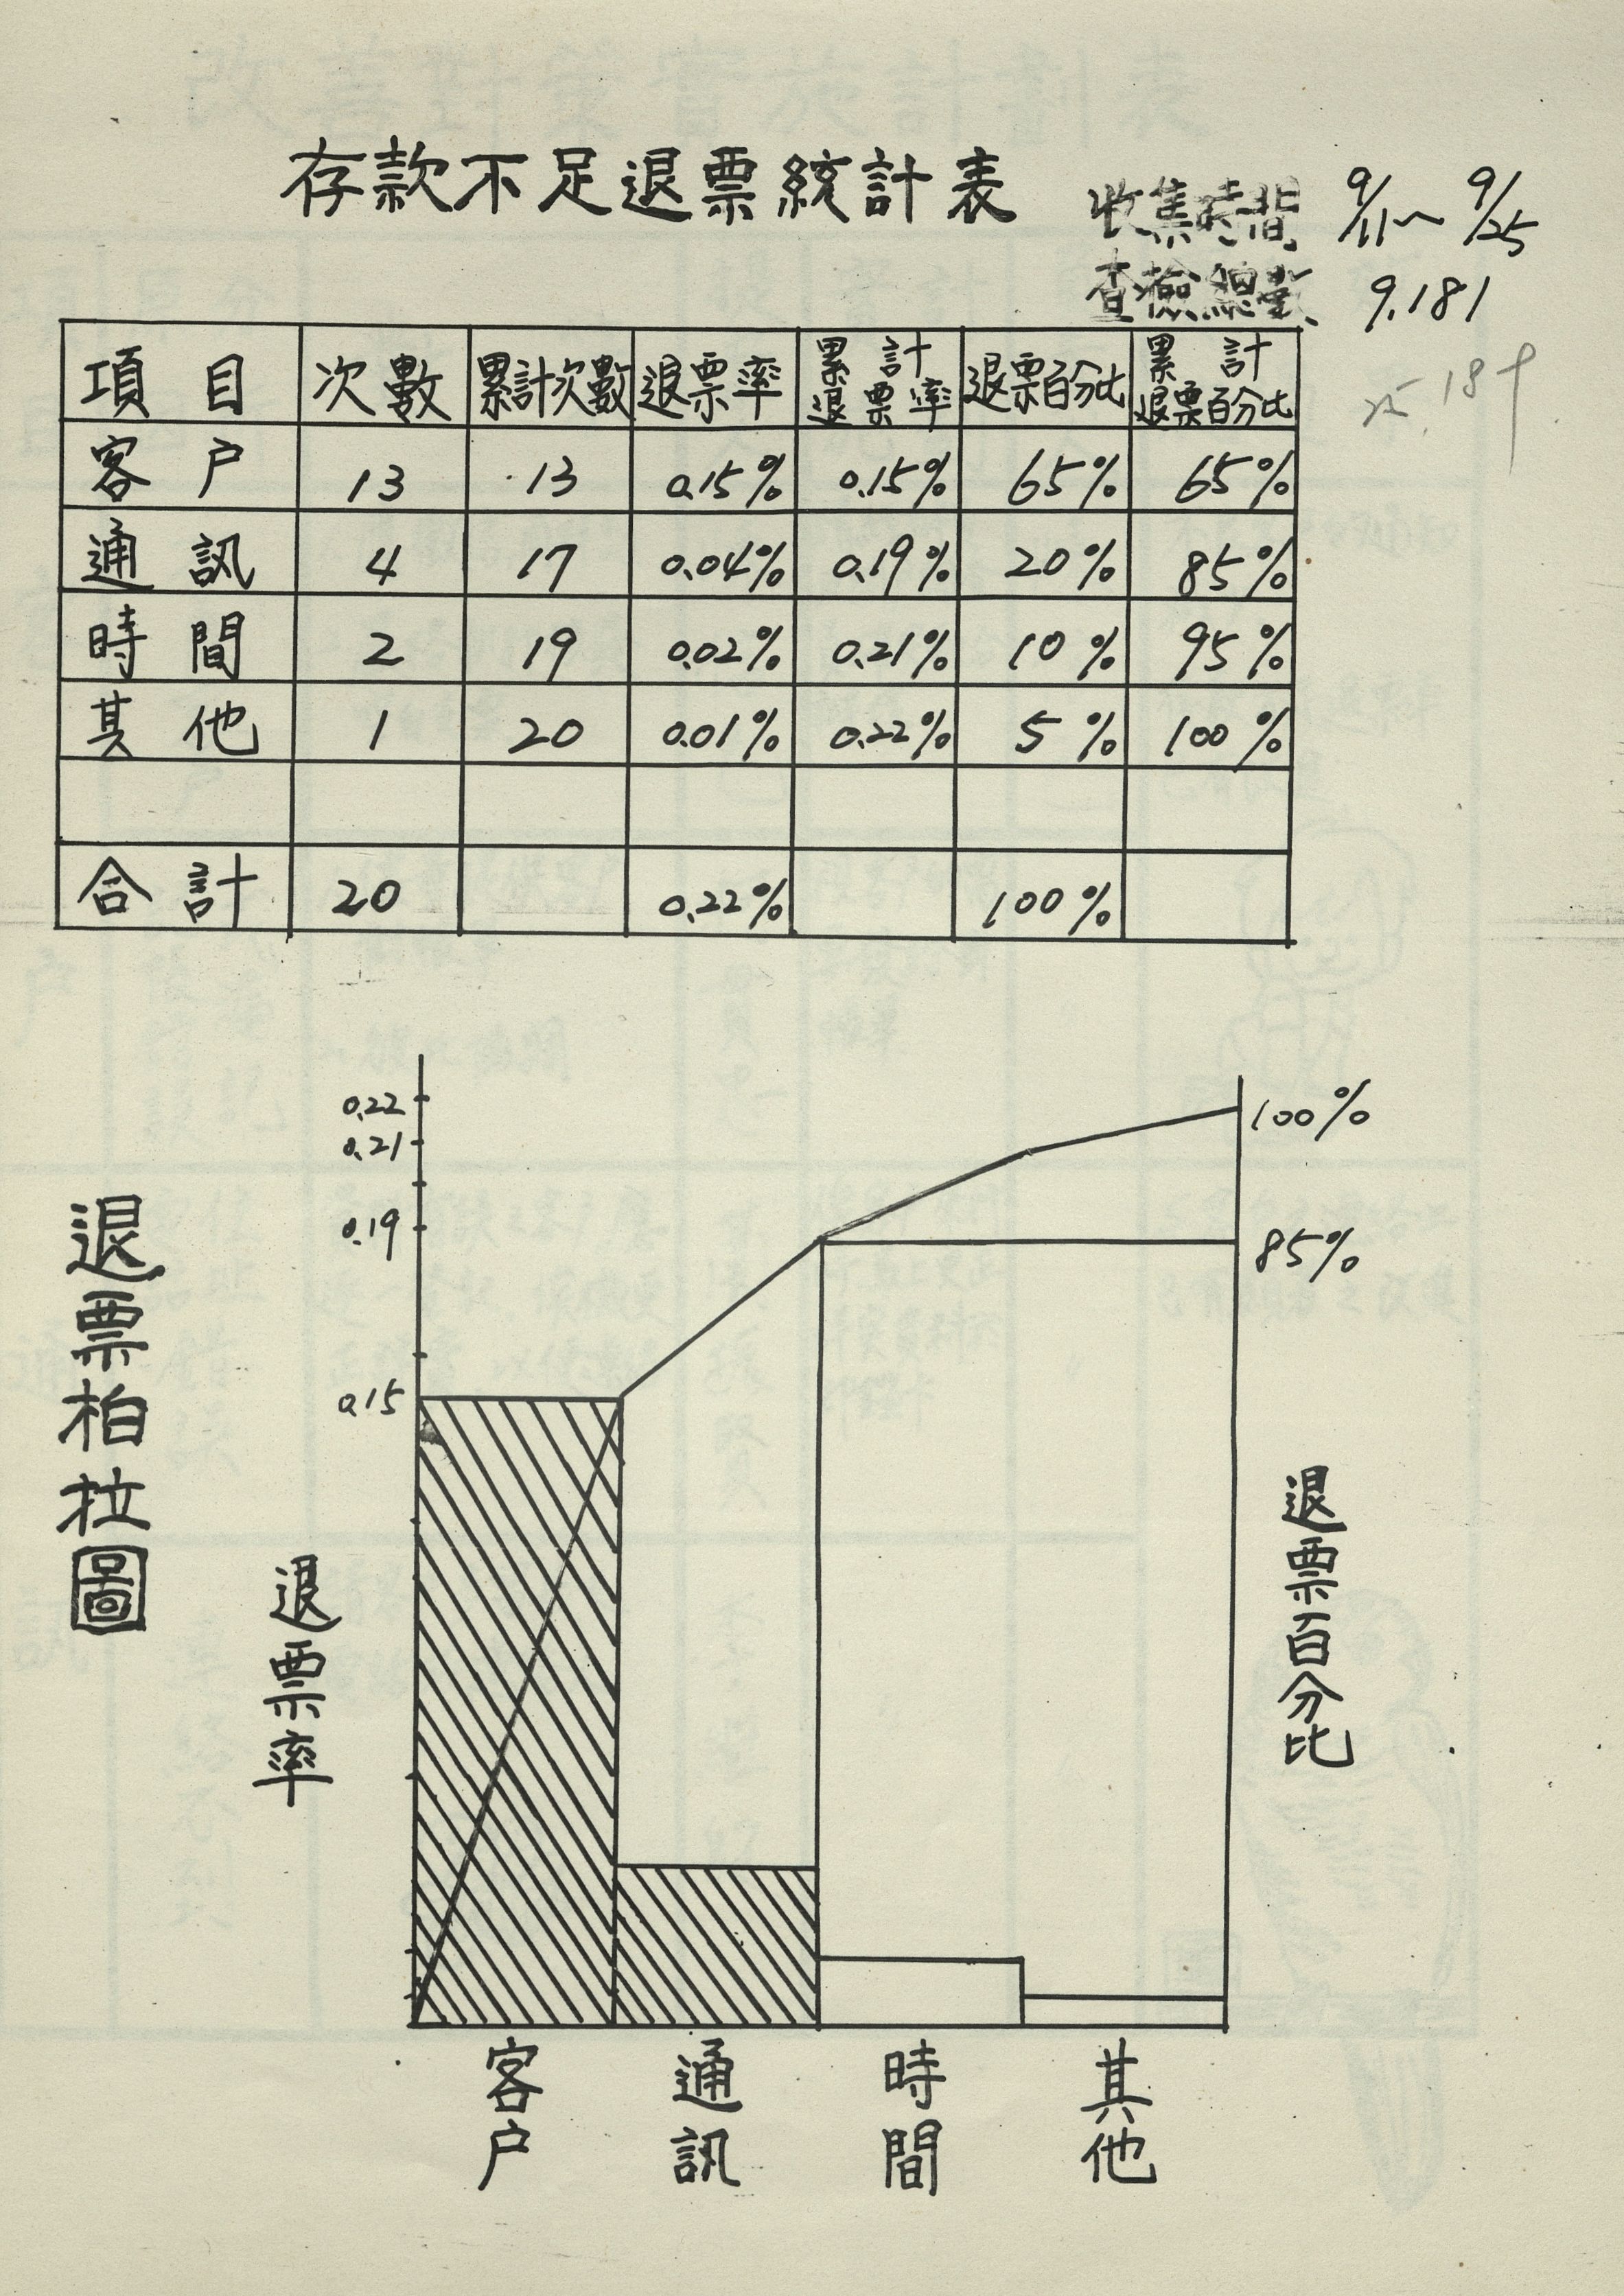 存款不足退票統計表
收集時間 9/11～9/25
查檢總數 9.181
項目 次數 累計次數 退票率 累計退票率 退票百分比 累計退票百分比
客户 13 13 0.15% 0.15% 65% 65%
通訊 4 17 0.04% 0.19% 20% 85%
時間 2 19 0.02% 0.21% 10% 95%
其他 1 20 0.01% 0.22% 5% 100%
合計 20 0.22% 100%
退票柏拉圖
退票率
0.22
0.21
0.19
0.15
100%
85%
退票百分比
客户
通訊
時間
其他